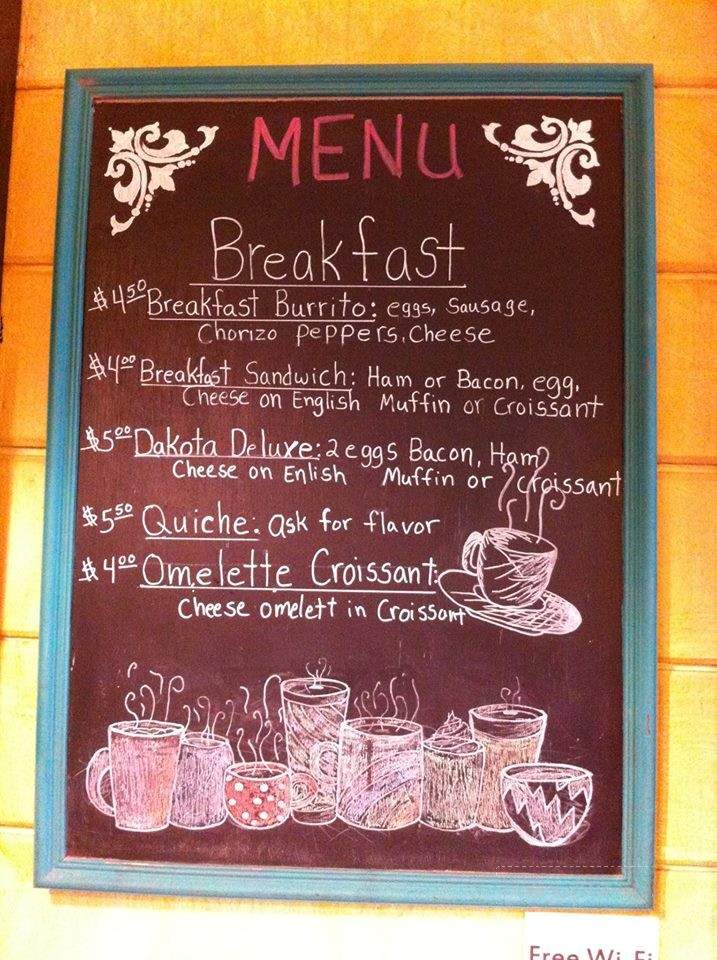 MENU
Breakfast
$4.50 Breakfast Burrito: eggs, Sausage,
Chorizo Peppers, Cheese
$4.00 Breakfast Sandwich: Ham or Bacon, egg,
Cheese on English Muffin or Croissant
$5.00 Dakota Deluxe: 2 eggs Bacon, Ham
Cheese on Enlish Muffin or Croissant
$5.50 Quiche: ask for flavor
$4.00 Omelette Croissant:
Cheese omelett in Croissant
Free Wi-Fi